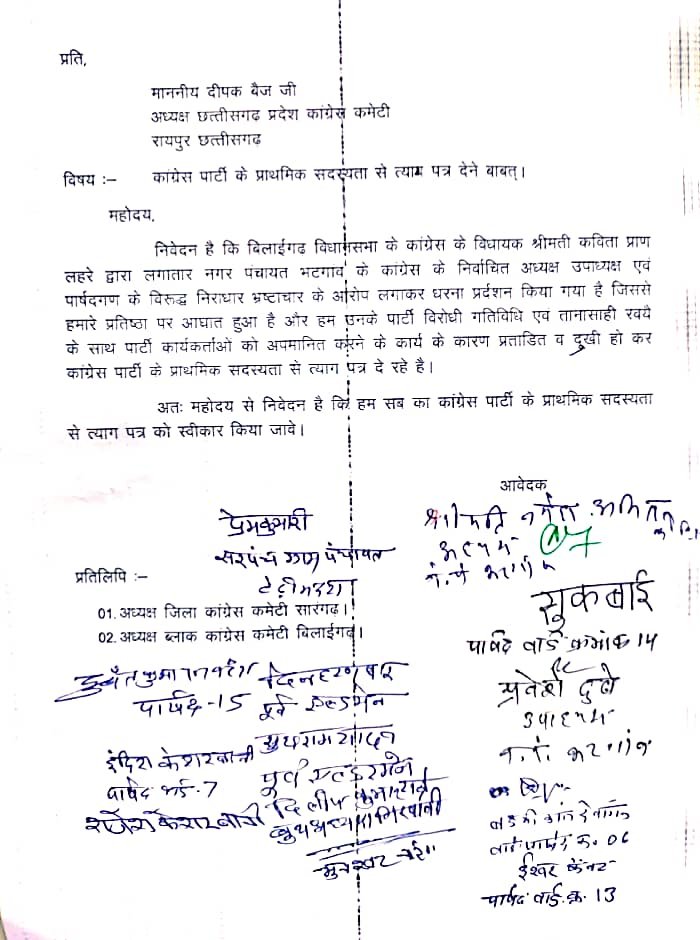 प्रति,
माननीय दीपक बैज जी
अध्यक्ष छत्तीसगढ़ प्रदेश कांग्रेस कमेटी
रायपुर छत्तीसगढ़
विषय :– कांग्रेस पार्टी के प्राथमिक सदस्यता से त्याग पत्र देने बाबत्।
महोदय,
निवेदन है कि बिलाईगढ विधानसभा के कांग्रेस के विधायक श्रीमती कविता प्राण
लहरे द्वारा लगातार नगर पंचायत भटगाव के कांग्रेस के निर्वाचित अध्यक्ष उपाध्यक्ष एवं
पार्षदगण के विरुद्ध निराधार भ्रष्टाचार के आरोप लगाकर धरना प्रर्दशन किया गया है जिससे
हमारे प्रतिष्ठा पर आघात हुआ है और हम उनके पार्टी विरोधी गतिविधि एवं तानासाही रवयै
के साथ पार्टी कार्यकर्ताओं को अपमानित करने के कार्य के कारण प्रताडित व दुखी हो कर
कांग्रेस पार्टी के प्राथमिक सदस्यता से त्याग पत्र दे रहे है।
अतः महोदय से निवेदन है कि हम सब का कांग्रेस पार्टी के प्राथमिक सदस्यता
से त्याग पत्र को स्वीकार किया जावे।
आवेदक
प्रेमकुमारी
सरपंच ग्राम पंचायत
प्रतिलिपि :–
01. अध्यक्ष जिला कांग्रेस कमेटी सारंगढ़।
02. अध्यक्ष ब्लाक कांग्रेस कमेटी बिलाईगढ़।
सुकबाई
पार्षद वार्ड क्रमांक 14
प्रवेश दुबे
उपाध्यक्ष
न. पं. भटगांव
पार्षद-15
पूर्व एल्डरमेन
इंदिरा केशरवानी
पार्षद वार्ड-7
पूर्व एल्डरमेन
दिलीप कुमार
06
ईश्वर
पार्षद वार्ड क्र. 13